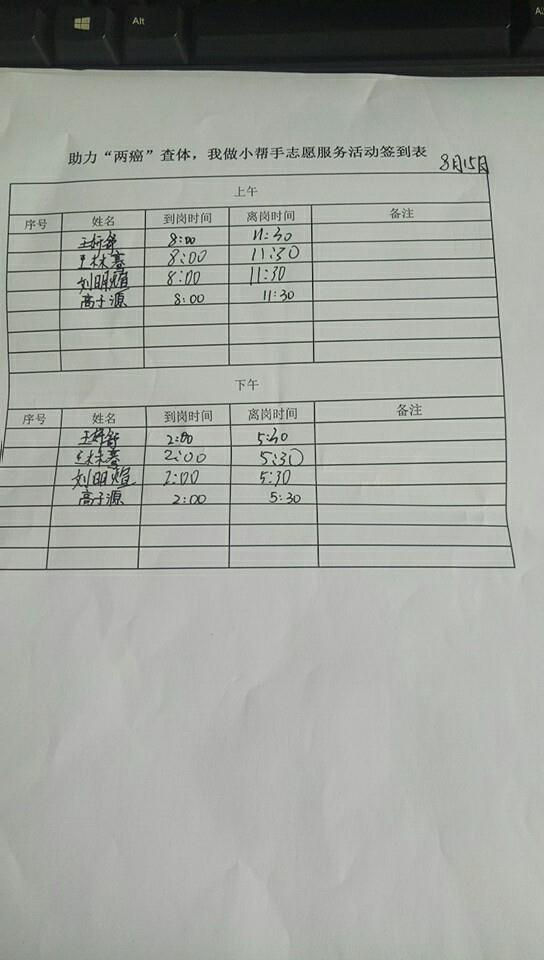 Alt
助力“两癌”查体，我做小帮手志愿服务活动签到表 8月15日
上午
序号 姓名 到岗时间 离岗时间 备注
8:00 11:30
8:00 11:30
刘明煊 8:00 11:30
高子源 8:00 11:30
下午
序号 姓名 到岗时间 离岗时间 备注
2:00 5:30
2:00 5:30
刘明煊 2:00 5:30
高子源 2:00 5:30